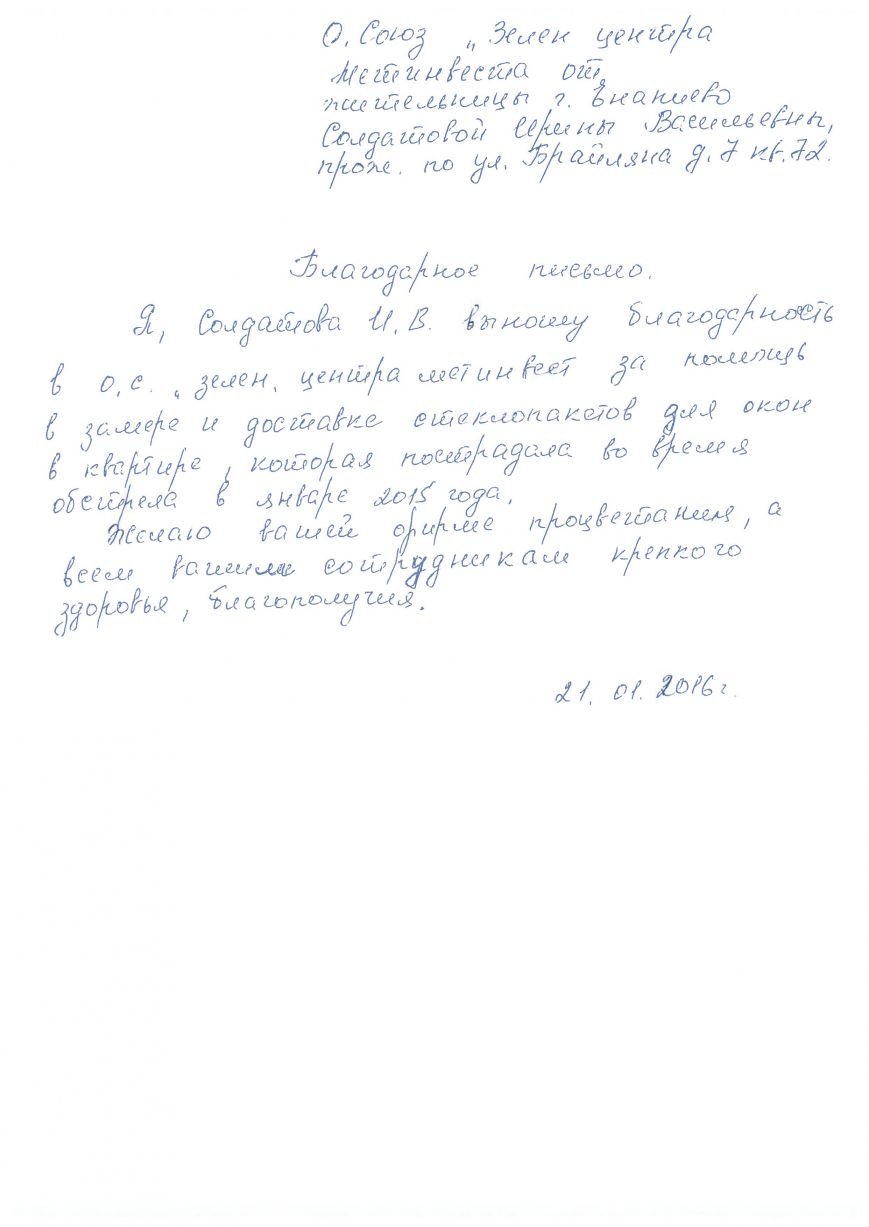 О. Союз „Зелен центра
Метинвеста от
жительницы г. Енакиево
Солдатовой Ирины Васильевны,
прож. по ул. Брайляна д. 7 кв. 72.
Благодарное письмо.
Я, Солдатова И.В. выношу благодарность
в о.с. „зелен. центра метинвест за помощь
в замере и доставке стеклопакетов для окон
в квартире, которая пострадала во время
обстрела в январе 2015 года.
Желаю вашей фирме процветания, а
всем вашим сотрудникам крепкого
здоровья, благополучия.
21. 01. 2016 г.